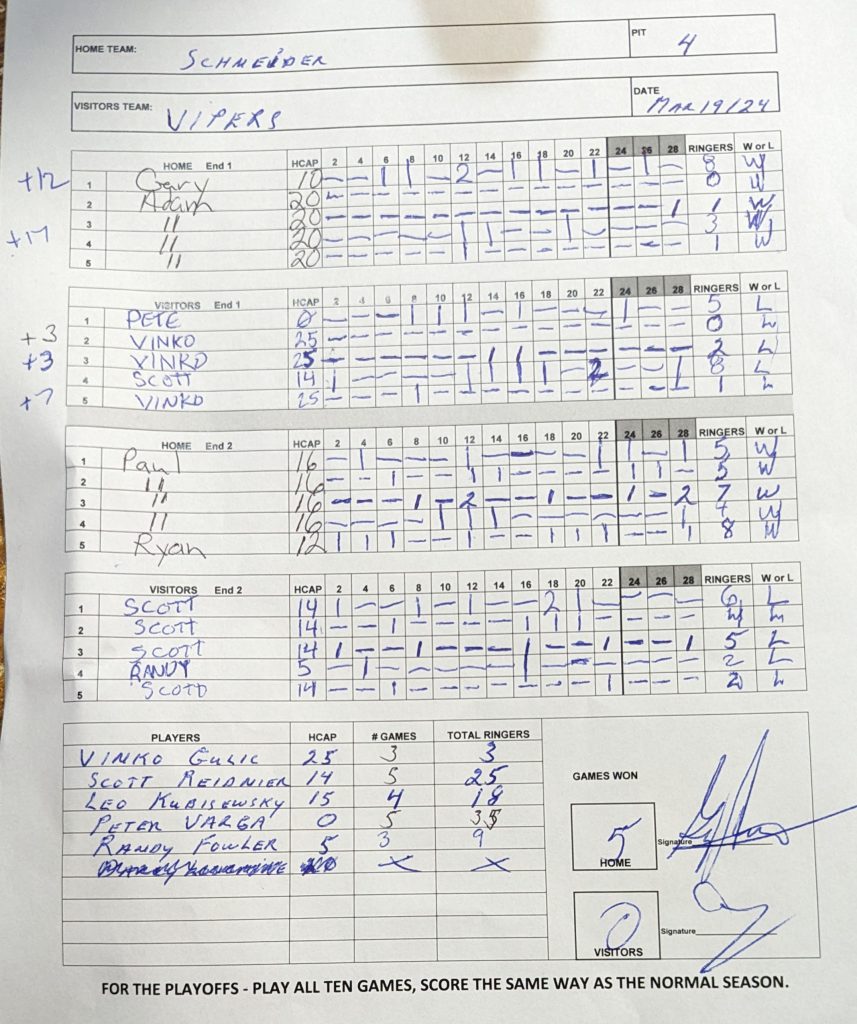 HOME TEAM: SCHMEIDER PIT 4
VISITORS TEAM: VIPERS DATE MAR 19/24
HOME End 1 HCAP 2 4 6 8 10 12 14 16 18 20 22 24 26 28 RINGERS W or L
+12 1 Gary 10 – – 1 1 – 2 – 1 1 – 1 – 1 – 8 W
2 Adam 20 – – – – – – – – – – – – – – 0 W
3 " 20 – – – – – – – – – – – – – 1 1 W
+17 4 " 20 – – – – 1 1 – – 1 – – – – 3 W
5 " 20 – – – – – 1 – – – – – – – – 1 W
VISITORS End 1 HCAP 2 4 6 8 10 12 14 16 18 20 22 24 26 28 RINGERS W or L
1 PETE 0 – – – 1 1 1 – 1 – – – 1 – – 5 L
+3 2 VINKO 25 – – – – – – – – – – – – – – 0 L
+3 3 VINKO 25 – – – – – – 1 1 – – – – – – 2 L
4 SCOTT 14 1 – – – – 1 1 1 1 – 2 – – 1 8 L
+7 5 VINKO 25 – – – 1 – – – – – – – – – – 1 L
HOME End 2 HCAP 2 4 6 8 10 12 14 16 18 20 22 24 26 28 RINGERS W or L
1 Paul 16 – 1 – – – 1 – – – – 1 1 – 1 5 W
2 " 16 – – 1 – – 1 1 – – – – 1 1 – 5 W
3 " 16 – – – 1 – 2 – – 1 – – 1 – 2 7 W
4 " 16 – – – – 1 1 1 – – – – – – 1 4 W
5 Ryan 12 1 1 1 – – 1 – – 1 1 1 – – 1 8 W
VISITORS End 2 HCAP 2 4 6 8 10 12 14 16 18 20 22 24 26 28 RINGERS W or L
1 SCOTT 14 1 – – 1 – 1 – – 2 1 – – – – 6 L
2 SCOTT 14 – – 1 – – – – 1 1 1 – – – – 4 L
3 SCOTT 14 1 – – 1 – – – 1 – – 1 – – 1 5 L
4 RANDY 5 – 1 – – – – – 1 – – – – – – 2 L
5 SCOTT 14 – – 1 – – – – – – – 1 – – – 2 L
PLAYERS HCAP # GAMES TOTAL RINGERS
VINKO GULIC 25 3 3
SCOTT REIDNIER 14 5 25
LEO KUBISEWSKY 15 4 18
PETER VARGA 0 5 35
RANDY FOWLER 5 3 9
X X
GAMES WON
5 HOME Signature
0 VISITORS Signature
FOR THE PLAYOFFS - PLAY ALL TEN GAMES, SCORE THE SAME WAY AS THE NORMAL SEASON.